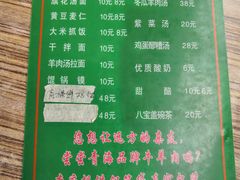 旗花汤面 10元 8元
冬瓜羊肉汤 38元
黄豆麦仁 10元 8元
紫菜汤 20元
大米抓饭 10元 8元
干拌面 10元
鸡蛋醪糟汤 28元
羊肉汤拉面 10元
优质酸奶 6元
馄锅馍 10元
甜醅 10元
48元
八宝盖碗茶 20元
48元
您想让远方的亲友,
尝尝青海品牌牛羊肉吗?